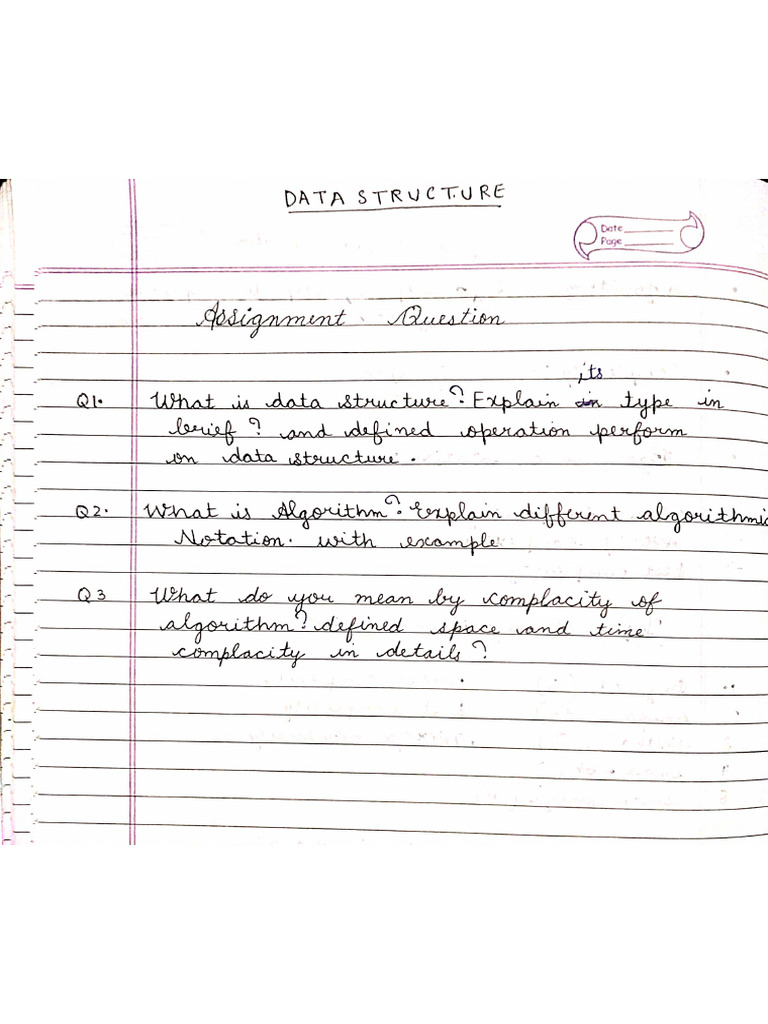 DATA STRUCTURE
Date
Page
Assignment Question
its
Q1. What is data structure? Explain in type in
berief? and defined operation perform
on data structure.
Q2. What is Algorithm? Explain different algorithmic
Notation. with example
Q3 What do you mean by complacity of
algorithm? defined space and time
complacity in details?